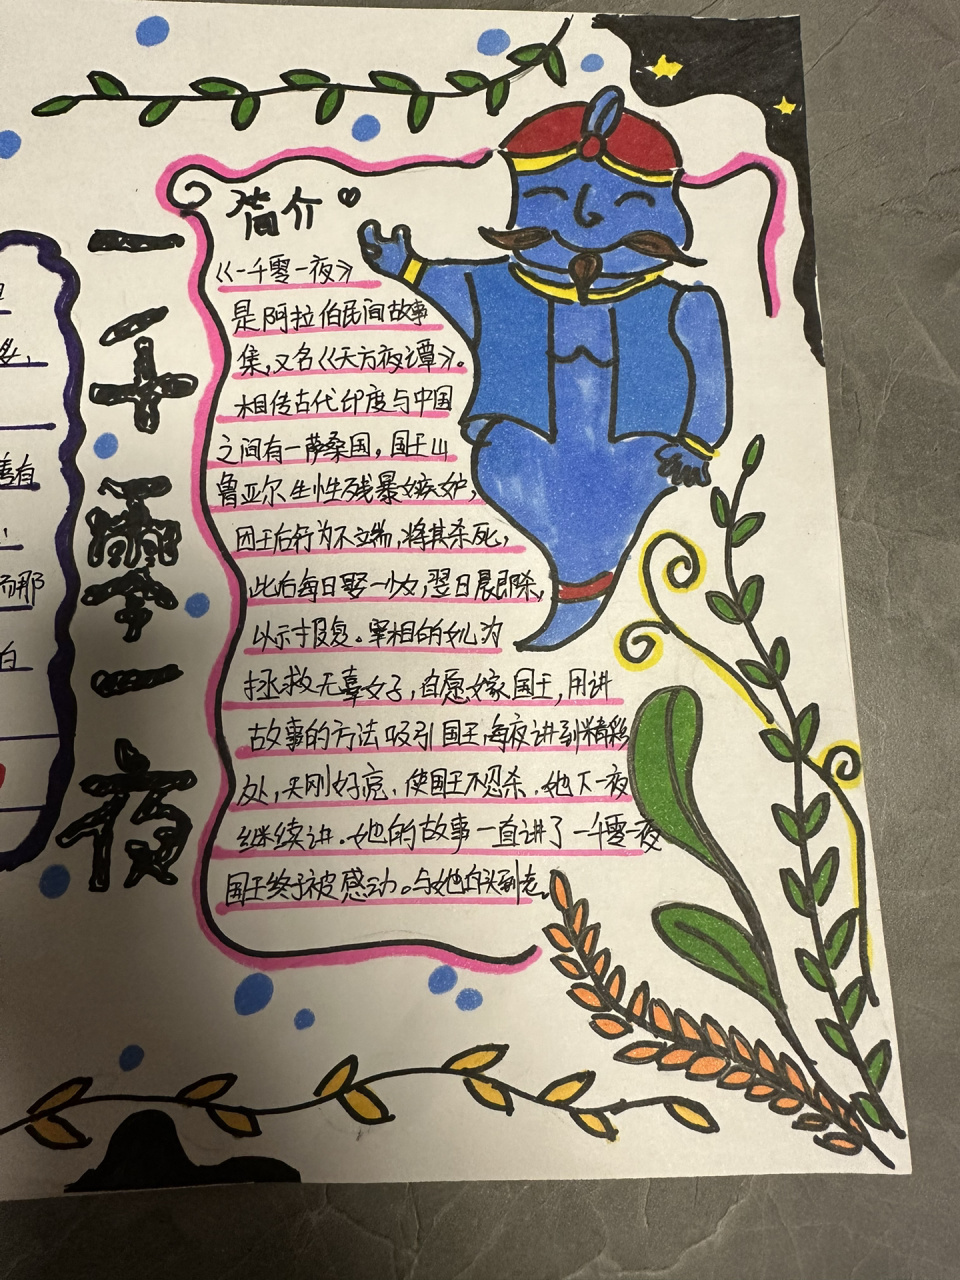 一千零一夜
简介
《一千零一夜》
是阿拉伯民间故事
集,又名《天方夜谭》。
相传古代印度与中国
之间有一萨桑国,国王山
鲁亚尔生性残暴嫉妒,
因王后行为不端,将其杀死,
此后每日娶一少女,翌日晨即除,
以示报复。宰相的女儿为
拯救无辜女子,自愿嫁国王,用讲
故事的方法吸引国王,每夜讲到精彩
处,天刚好亮,使国王不忍杀,她下一夜
继续讲.她的故事一直讲了一千零一夜
国王终于被感动。与她白头到老。
多,
善有
而那
白